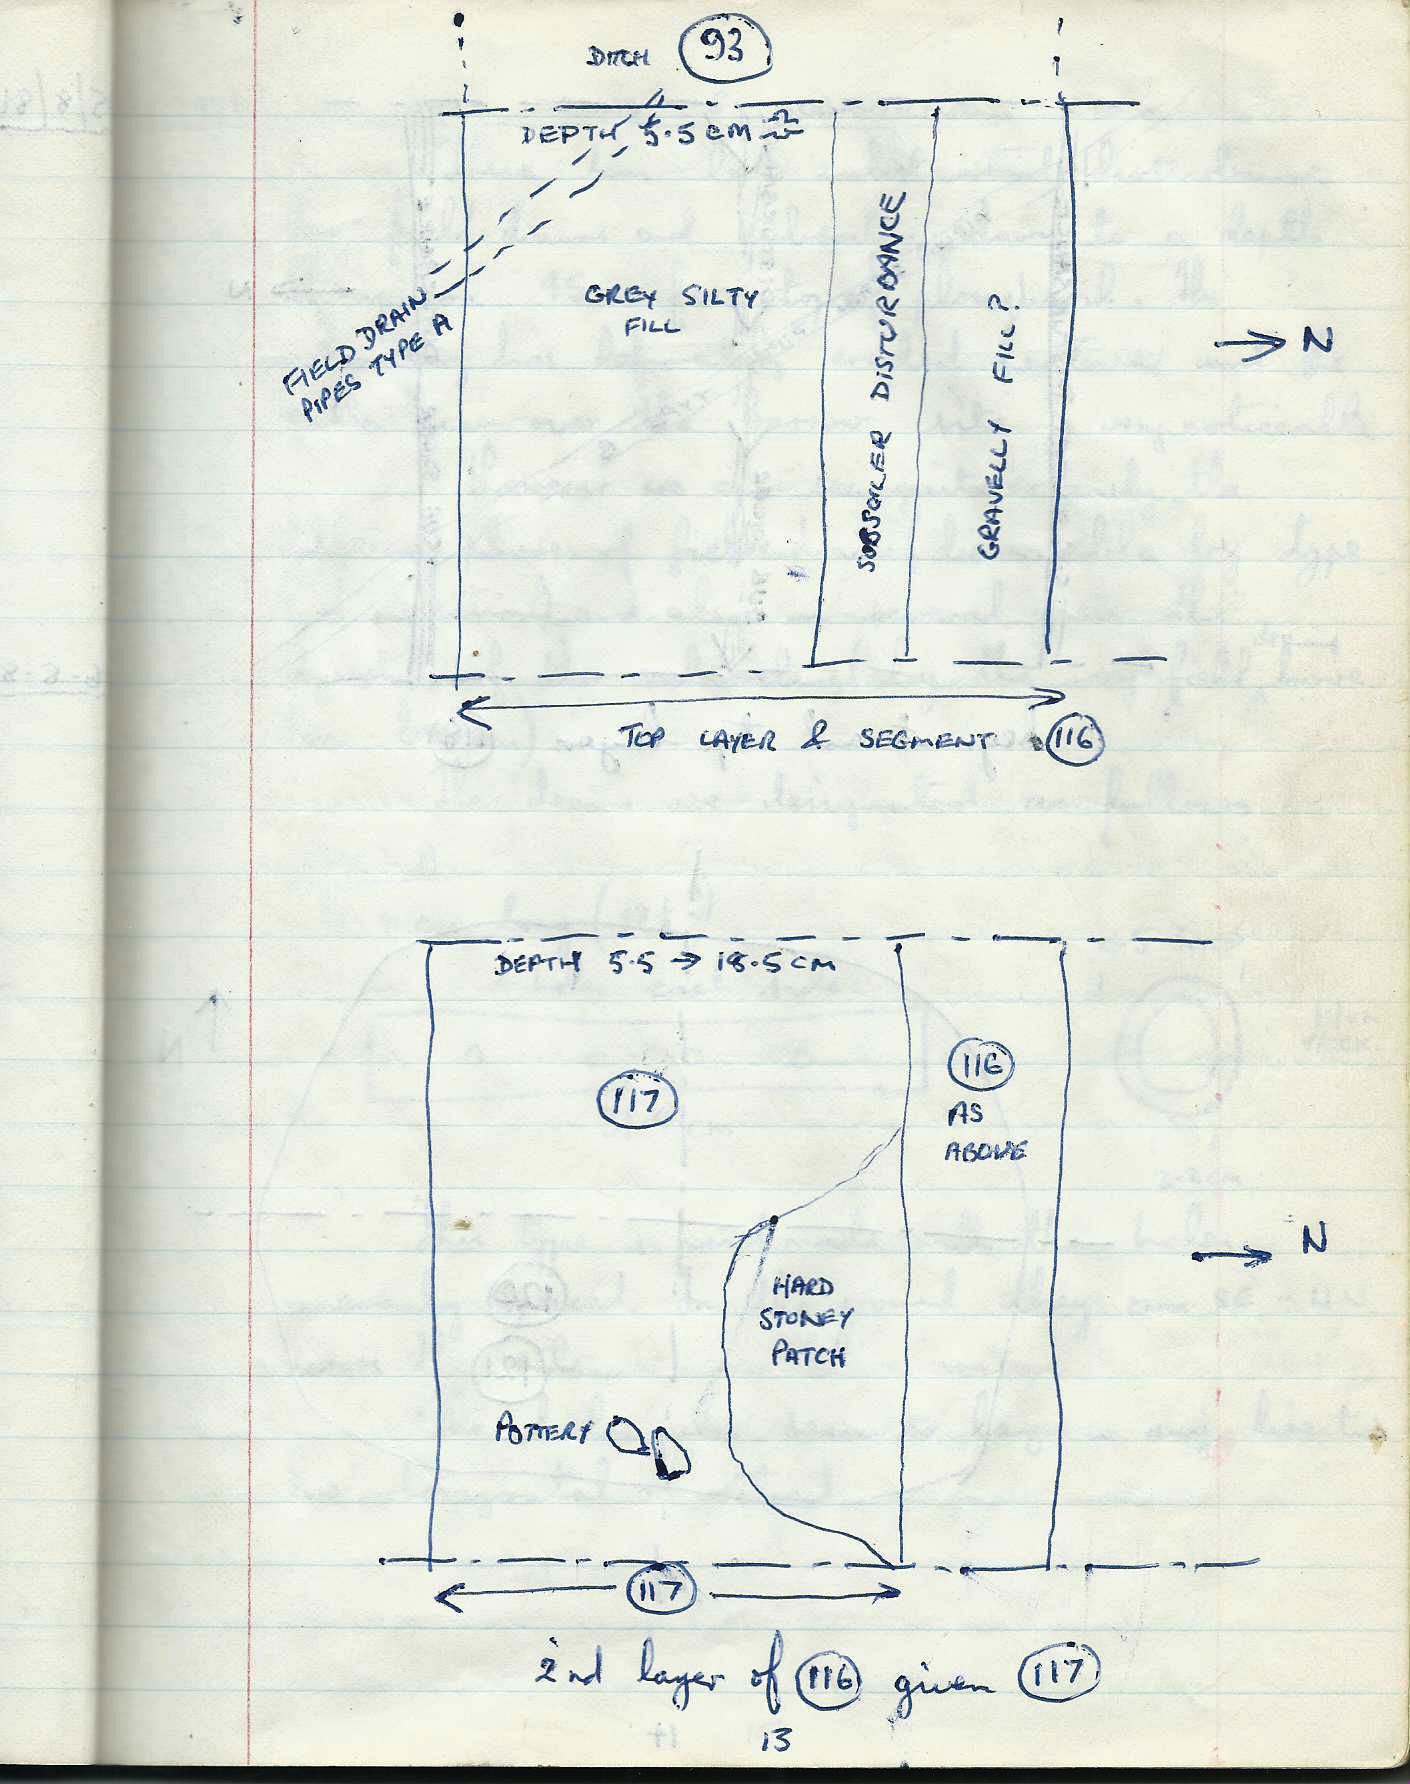 DITCH 93
DEPTH 5.5 CM
FIELD DRAIN
PIPES TYPE A
GREY SILTY
FILL
SUBSOILER DISTURBANCE
GRAVELLY FILL?
N
TOP LAYER & SEGMENT 116
DEPTH 5.5 → 18.5 CM
117
116
AS
ABOVE
N
HARD
STONEY
PATCH
POTTERY
117
2nd layer of 116 given 117
13